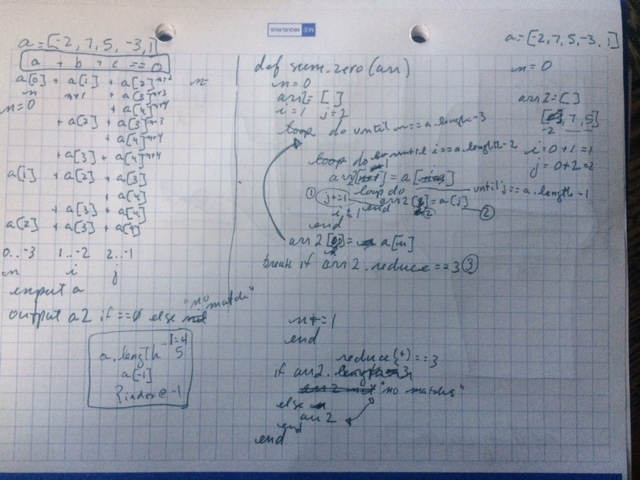 a = [-2, 7, 5, -3, 1]
a + b + c == 0
a[0] + a[1] + a[2] n+2
n n+1 + a[3] n+3
n=0 + a[4] n+4
+ a[2] + a[3] n+3
+ a[4] n+4
+ a[3] + a[4] n+4
a[1] + a[2] + a[3]
+ a[4]
+ a[3] + a[4]
a[2] + a[3] + a[4]
0..-3 1..-2 2..-1
n i j
input a
output a2 if ==0 else "no match"
a.length 5
a[-1]
def sum.zero (arr)
n = 0
arr2 = [ ]
i = 1 j = 2
loop do until n == a.length -3
loop do until i == a.length -2
loop do until j == a.length -1
① j += 1 arr2[2] = a[j] ②
end
end
arr2 [0] = a[n]
break if arr2.reduce == 3 ③
n += 1
end
reduce(+) == 3
if arr2.
"no matchs"
else
arr2
end
end
a = [-2, 7, 5, -3, 1]
n = 0
arr2 = [ ]
7, 5]
-2
i = 0 + 1 = 1
j = 0 + 2 = 2